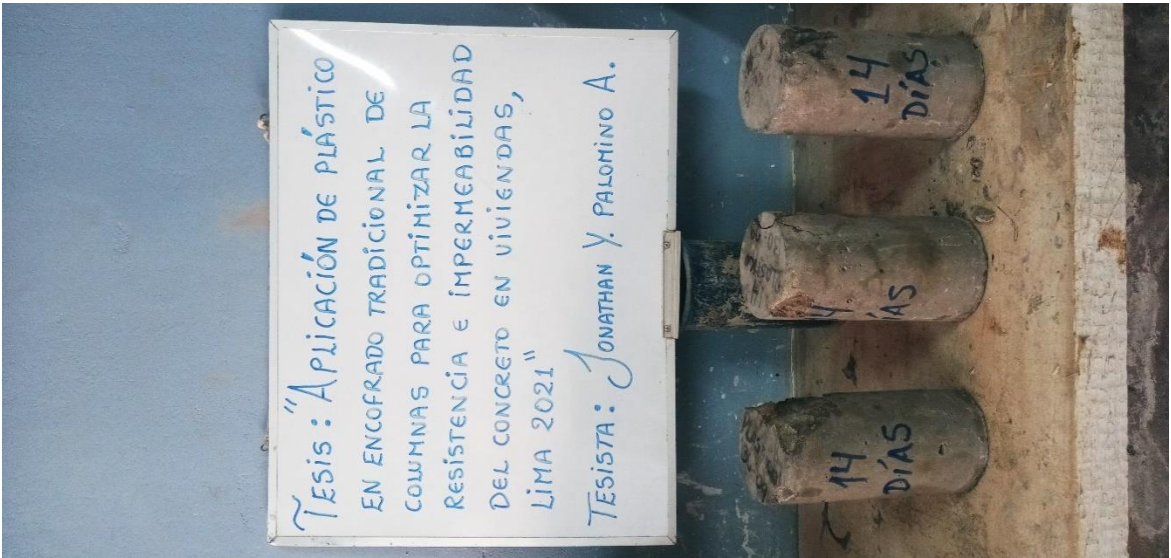 TESIS: "APLICACIÓN DE PLÁSTICO
EN ENCOFRADO TRADICIONAL DE
COLUMNAS PARA OPTIMIZAR LA
RESISTENCIA E IMPERMEABILIDAD
DEL CONCRETO EN VIVIENDAS,
LIMA 2021"
TESISTA: JONATHAN Y. PALOMINO A.
14
DÍAS
14
DÍAS